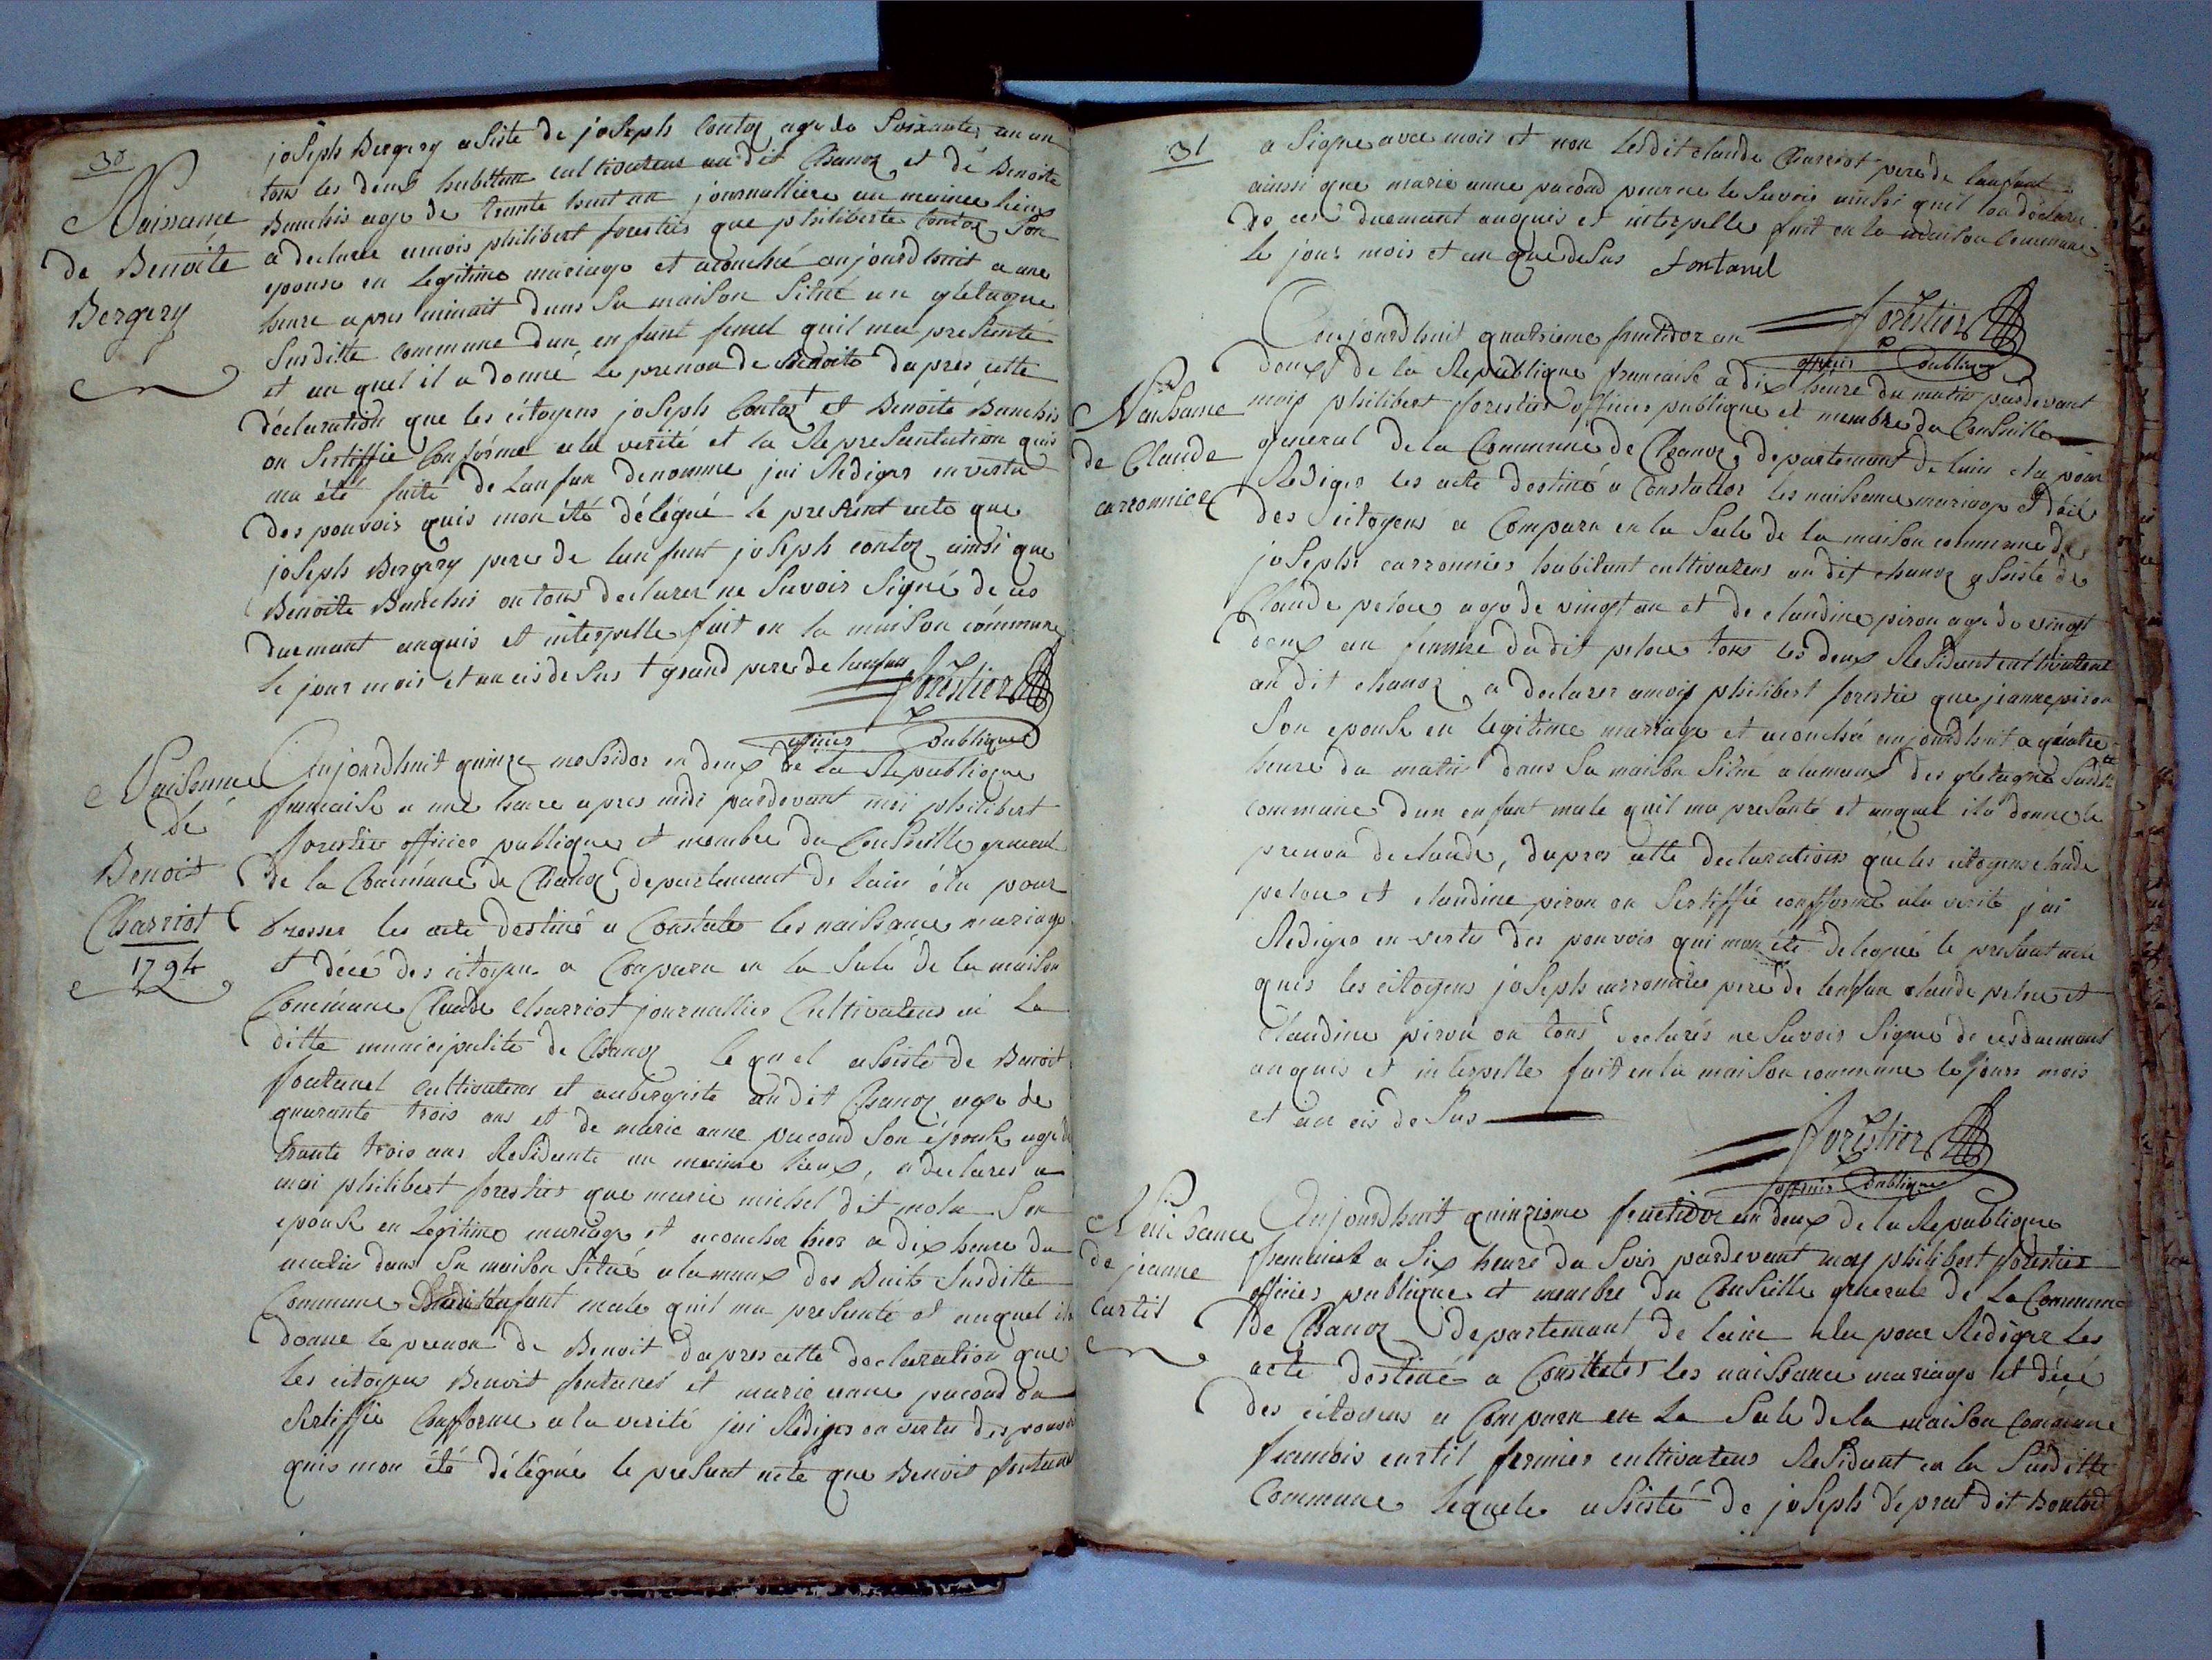 30
Naissance
de Benoite
Bergery
joseph Bergery asiste de joseph Contoz age de soixante un an
tous les deux habitan cultivateur au dit Chanoz et de Benoite
Banchis age de trante huit an journalliere au maime lieux
a declarer amois philibert forestier que philiberte Contoz son
epouse en legitime mariage et acouché aujourdhuit a une
heure apres minuit dans sa maison situé au gletagne
susditte commune dun enfant femel quil ma presanté
et au quel il a donné le prenon de Benoite dapres cette
déclaration que les citoyens joseph Contoz + et Benoite Banchis
on sertiffié conforme ala verité et la Represantation quis
ma été faite de lanfan denomme jai Rediger en vertu
des pouvoir quis mon été délégué le present acte que
joseph Bergery pere de lanfant joseph contoz ainsi que
Benoite Banchis on tous declarer ne savoir signé de ce
duemant anquis et interpelle fait en la maison commune
le jour mois et an cis desus + grand pere de lanfan
forestier
officier publique
Naissance
de
Benoit
Charriot
1794
Aujourdhuit quinze messidor an deux de la Republique
francaise a une heure apres midi pardevant moi philibert
forestier officier publique et membre du Conseille general
de la Commune de Chanoz departement de lain élu pour
dresser les acte destiné a Constater les naissance mariage
et décé des citoyen a Comparu en la sale de la maison
Commune Claude Charriot journallier Cultivateur en la
ditte municipalité de Chanoz le quel assisté de Benoit
fontanel cultivateur et aubergiste audit Chanoz age de
quarante trois ans et de marie anne pacoud son épouse age de
trante trois ans Residante au maime lieux, a declarer a
moi philibert forestier que marie michel dit mola son
epouse en legitime mariage et acoucher hier a dix heure du
matin dans sa maison situé alamaux des Buit susditte
Commune enfant male quil ma presanté et auquel ila
donne le prenon de Benoit dapres cette declaration que
les citoyen Benoit fontanel et marie anne pacoud on
sertiffié Confforme ala verité jai Rediger en vertu des pouvoir
quis mon été délégué le presant acte que Benoit fontanel
31
a signe avec mois et non lesdit claude Charriot pere de lanfant
ainsi que marie anne pacoud pour ne le savoir ainsi quil lon déclare
de ce duemant anquis et interpelle fait en la maison commune
le jour mois et an que desus fontanel
forestier
officier publique
Naissance
de Claude
carronnier
Aujourdhuit quatrieme fructidor an
deux de la Republique francaise a dix heure du matin pardevant
mois philibert forestier officier publique et membre du Conseille
general de la Commune de Chanoz departemant de lain elu pour
Rediger les acte destiné a Constatter les naissance mariage et décé
des citoyens a Comparu en la sale de la maison commune de
joseph carronnier habitant cultivateur au dit chanoz assisté de
Claude peloue age de vingt an et de claudine piron age de vingt
deux an femme dudit peloue tous les deux Residant cultivateur
au dit chanoz a declarer amois philibert forestier que jeanne piron
son epouse en legitime mariage et acouché aujourdhuit a quatre
heure du matin dans sa maison situé alamaux des gletagne susditte
commune dun enfant male quil ma presanté et auquel ila donne le
prenon de claude, dapres cette declarations que les citoyens claude
peloue et claudine piron on sertiffié confforme ala verité jai
Rediger en vertu des pouvoir qui mon été delegué le presant acte
quis les citoyens joseph carronnier pere de lenfan claude peloue et
Claudine piron on tous declarés ne savoir signé de ce duemant
anquis et interpelle fait en la maison commune le jours mois
et an cis desus
forestier
officier publique
Naissance
de jeanne
Curtil
Aujourdhuit quinzieme fructidor an deux de la Republique
francaise a six heure du soir pardevant moy philibert forestier
officier publique et membre du Conseille generale de la Commune
de Chanoz departemant de lain elu pour Rediger les
acte destiné a Constater les naissance mariage et décé
des citoyens a Comparu en la sale de la maison commune
francois curtil fermier cultivateur Residant en la susditte
Commune lequele assisté de joseph déprat dit Boutod